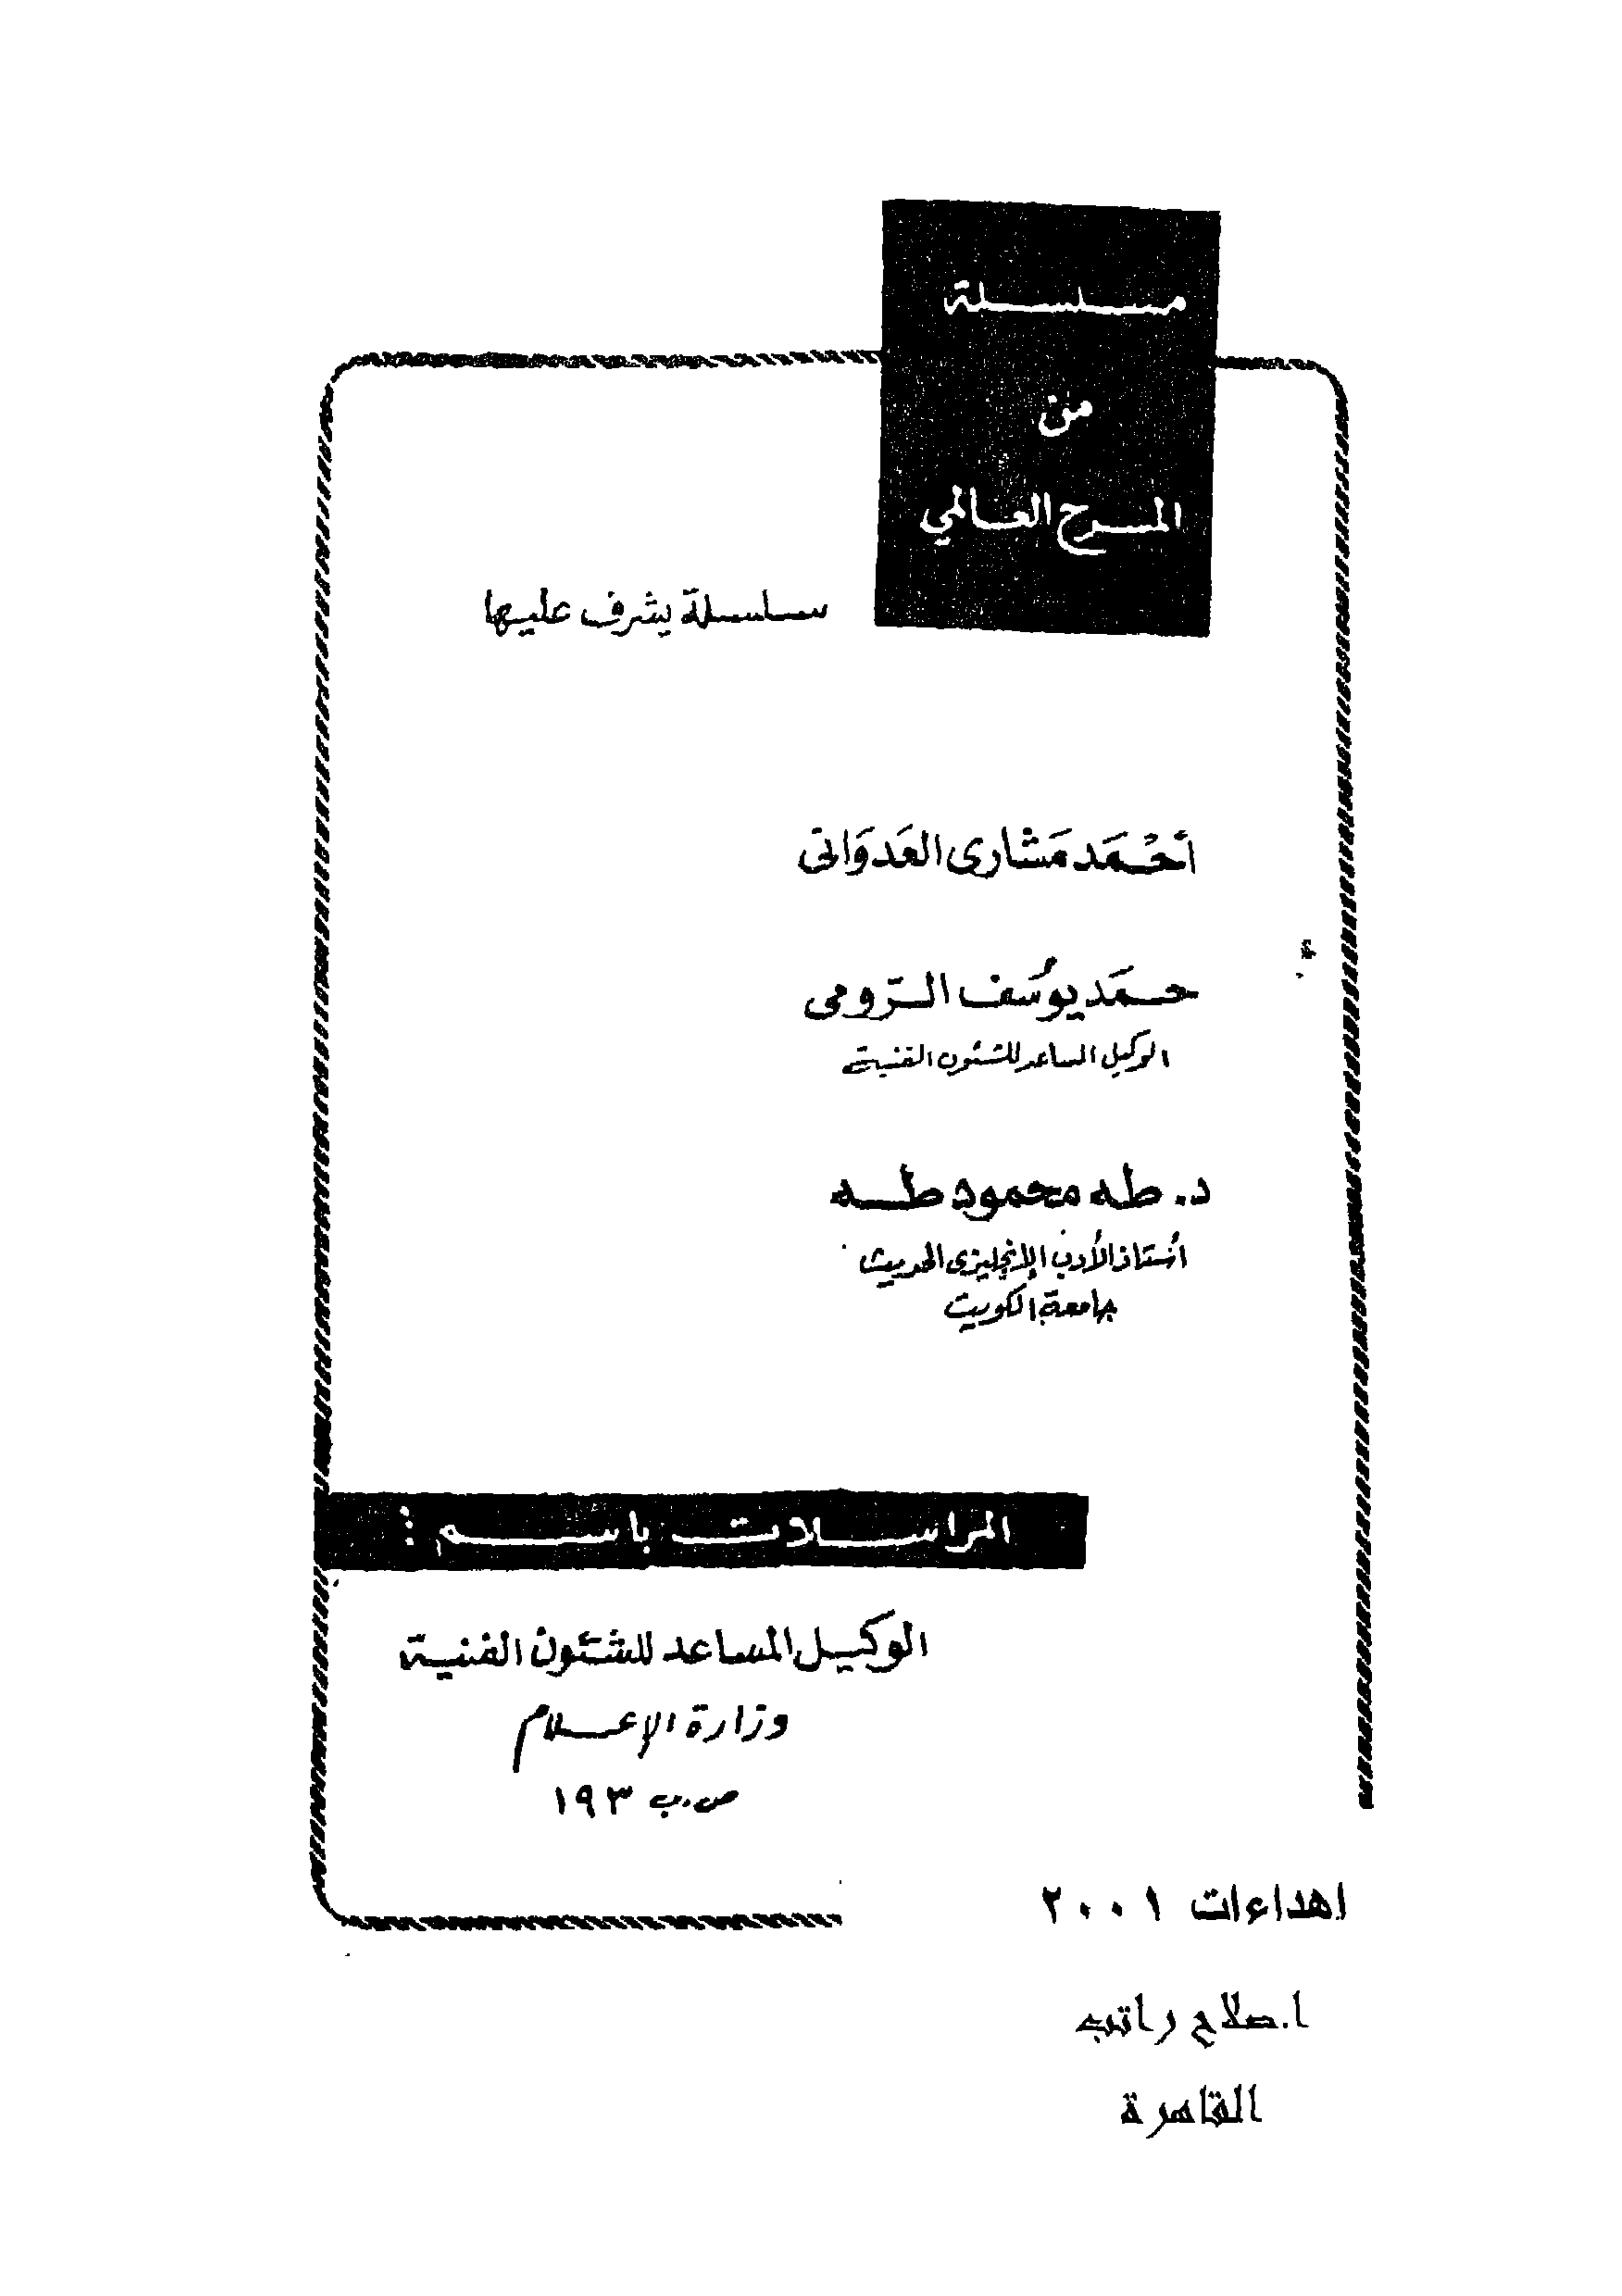 سلسلة
من
المسرح العالمي
سلسلة يشرف عليها
أحْمَد مَشارى العَدوَانى
حمَد يوسُف الرّومى
الوكيل المساعد للشئون الفنية
د. طه محمود طه
أستاذ الأدب الإنجليزى الحديث
جامعة الكويت
المراسلات باسم :
الوكيل المساعد للشئون الفنية
وزارة الإعلام
ص.ب ١٩٣
اهداءات ٢٠٠١
ا.صلاح راتب
القاهرة